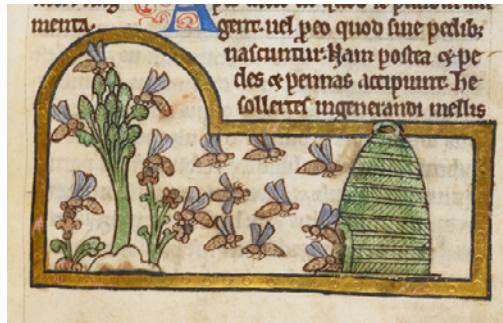 menta.
gent. uel ꝑeo quod sine pedib;
nascuntur. Nam postea & pe
des & pennas accipiunt. he
sollertes ingenerandi mellis